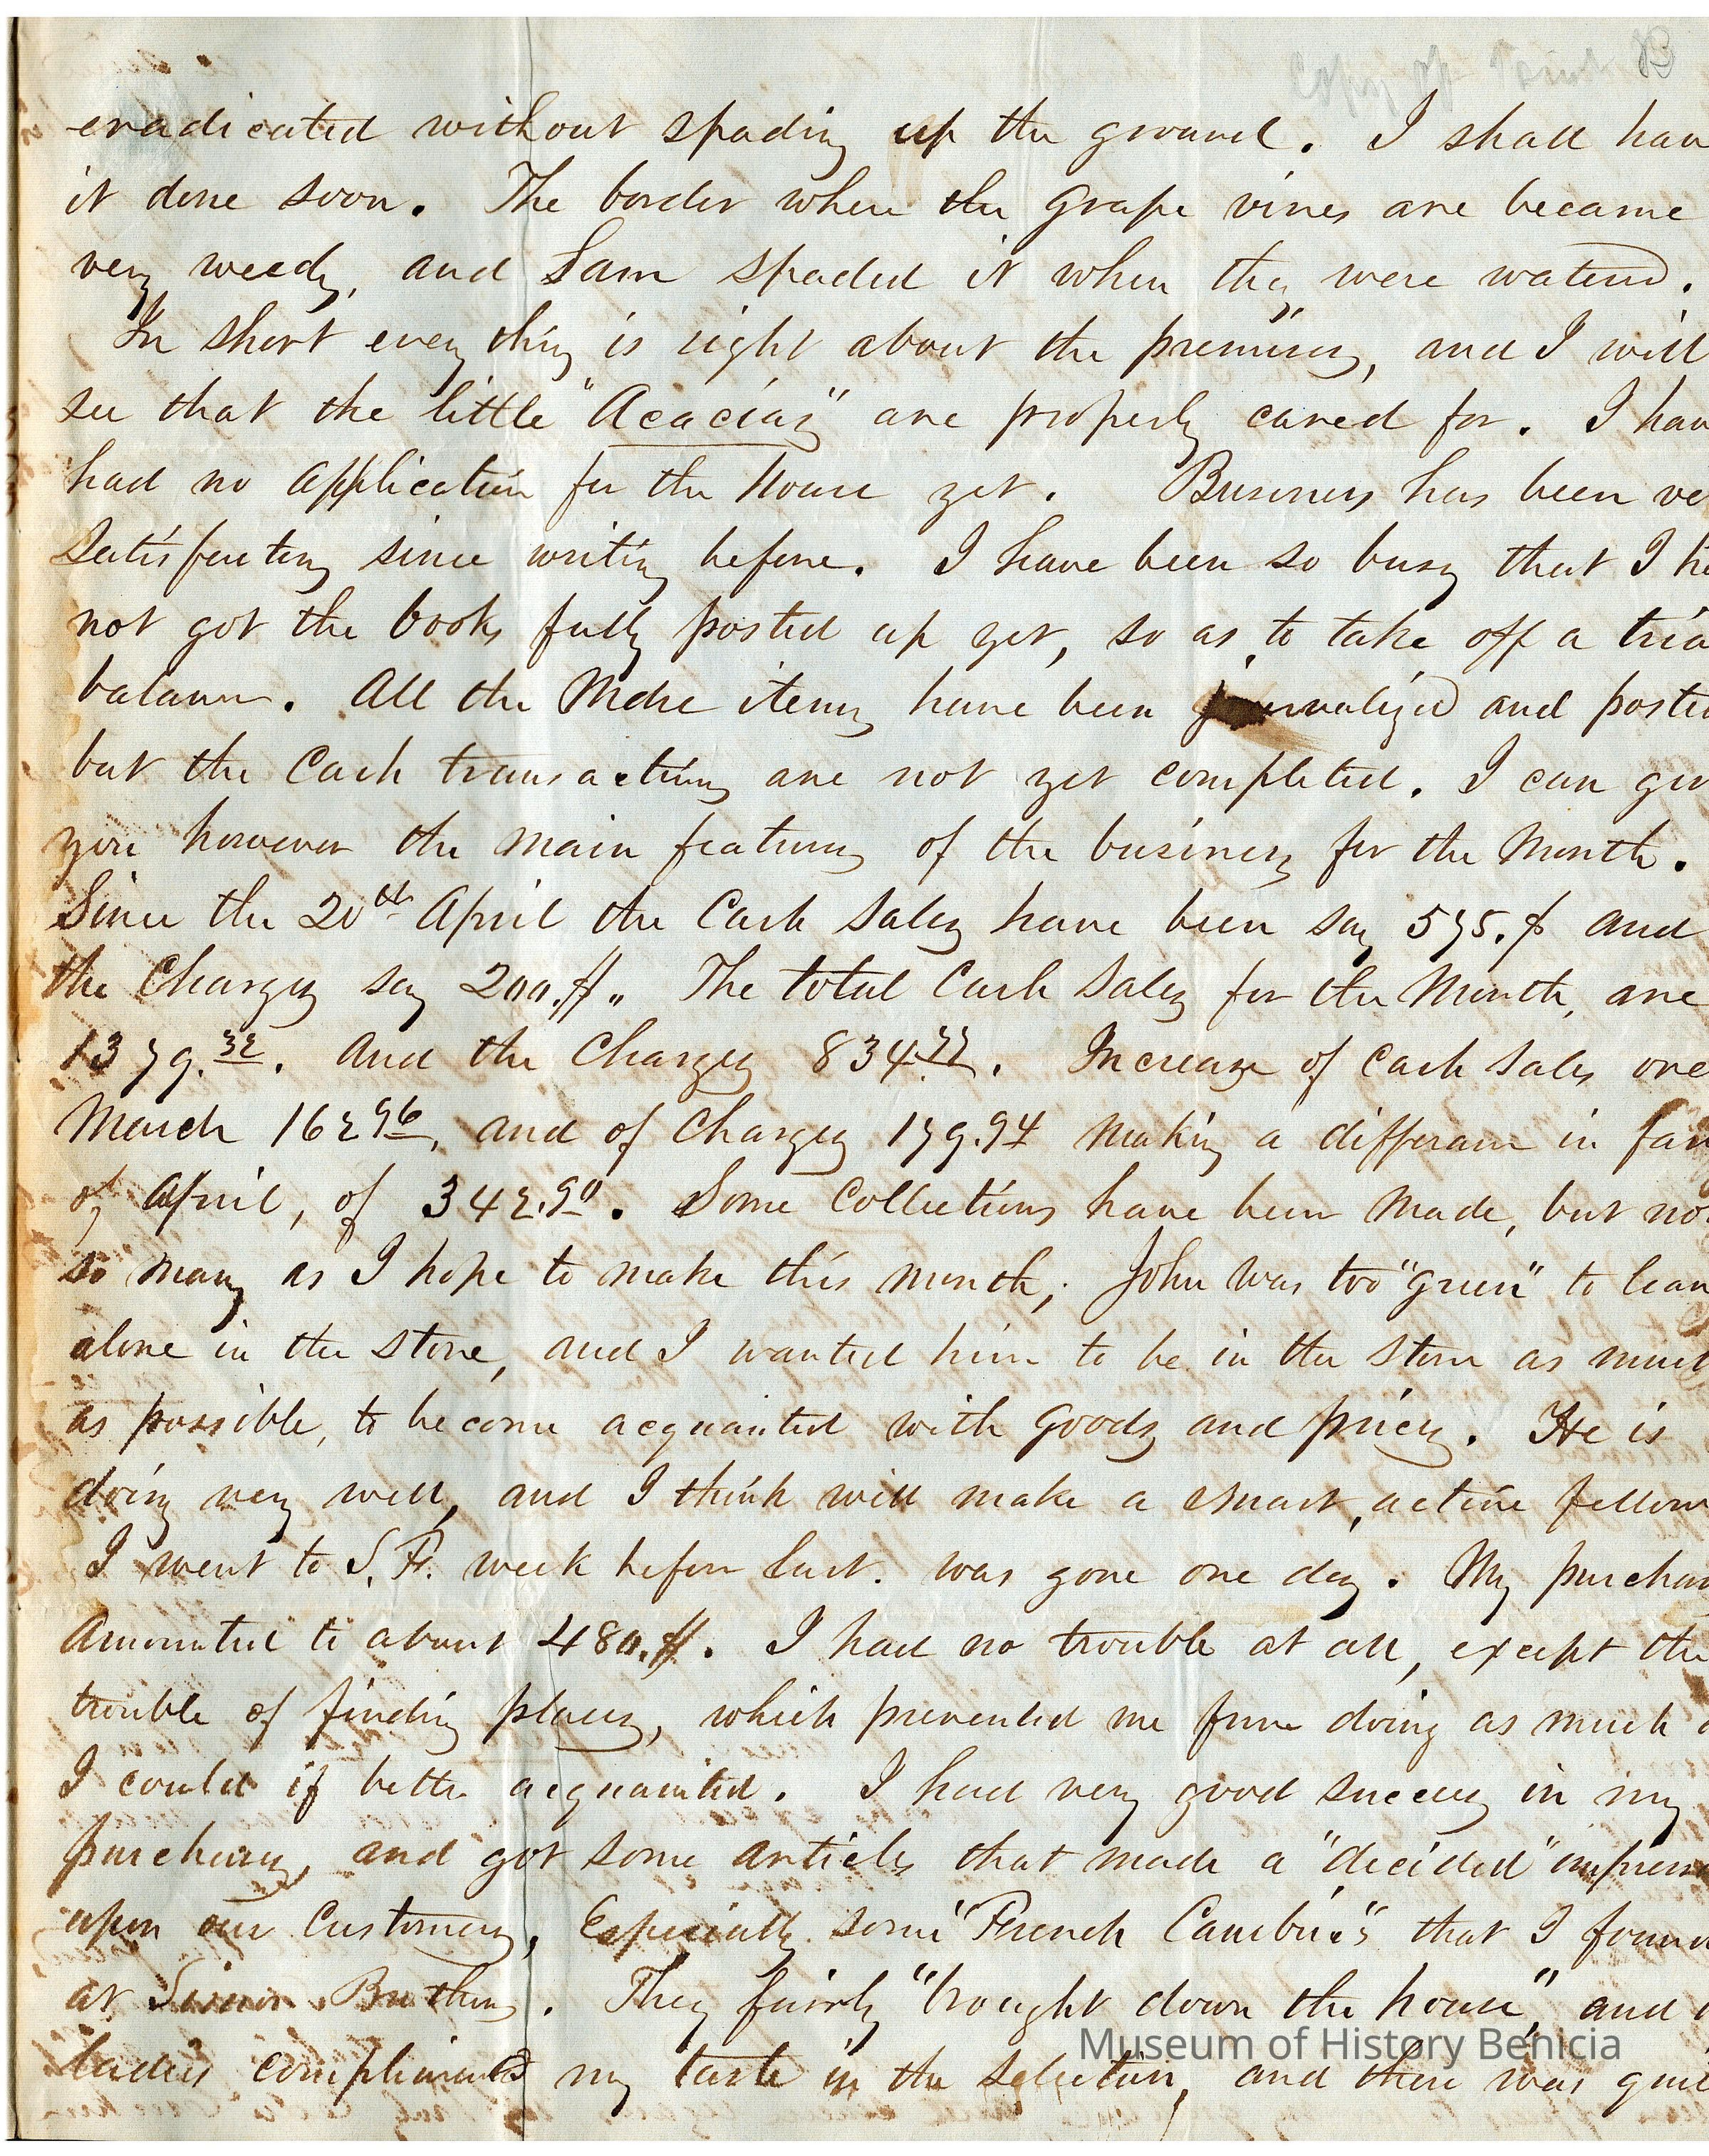 eradicated without spading up the ground. I shall hav
it done soon. The border where the grape vines are became
very weedy, and Sam spaded it when they were watered.
In short every thing is right about the premises, and I will
see that the little "Acacias" are properly cared for. I hav
had no application for the House yet. Business has been ve
satisfactory since writing before. I have been so busy that I h
not got the books fully posted up yet, so as to take off a tria
balance. All the Mdse items have been journalized and poste
but the Cash transactions are not yet completed. I can giv
you however the main features of the business for the Month.
Since the 20th April the Cash Sales have been say 575.$ and
the Charges say 200.$. The total Cash Sales for the Month, are
1379.32. And the Charges 834.77. Increase of Cash Sales ove
March 162.96, and of Charges 179.94 making a differance in fav
of April, of 342.90. Some Collections have been made, but no
so many as I hope to make this month; John was too "green" to leav
alone in the store, and I wanted him to be in the store as much
as possible, to become acquainted with goods and prices. He is
doing very well, and I think will make a smart, active fellow
I went to S. F. week before last. was gone one day. My purchas
amounted to about 480.$. I had no trouble at all, except the
trouble of finding places, which prevented me from doing as much a
I could if better acquainted. I had very good success in my
purchases, and got some articles that made a "decided" impress
upon our Customers, Especially some "French Cambric's that I foun
at Brothers. They fairly "brought down the house", and
ladies compliment my taste in the selection, and there was quit
Museum of History Benicia